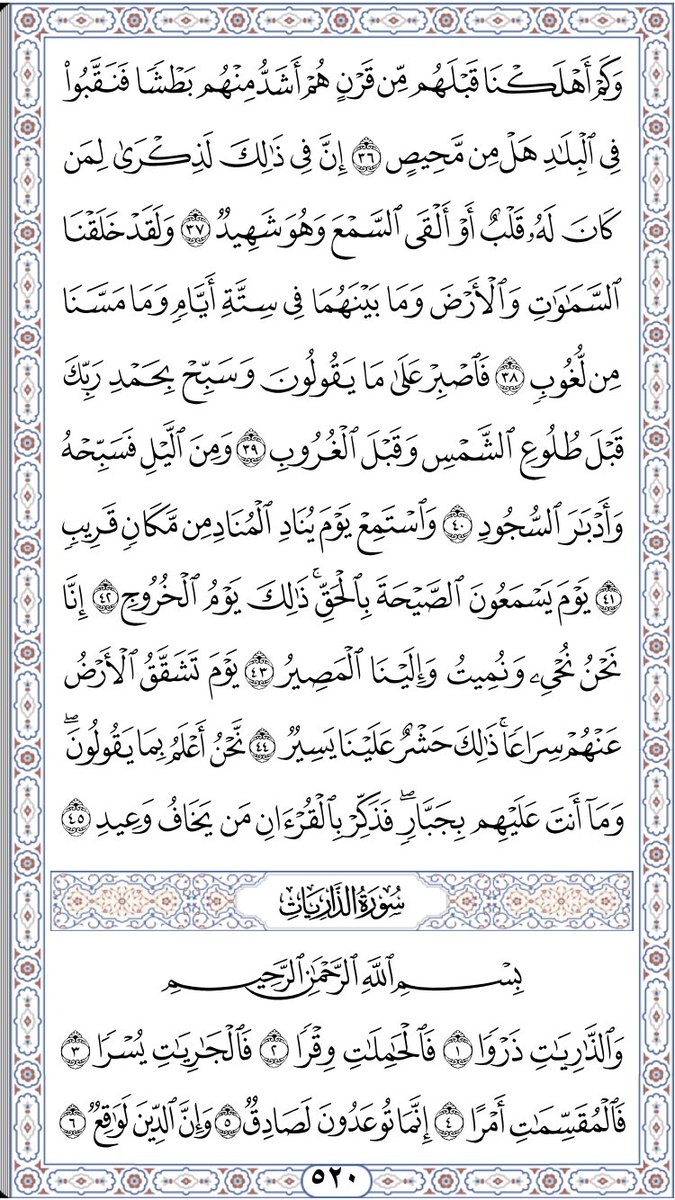 وَكَمْ أَهْلَكْنَا قَبْلَهُم مِّن قَرْنٍ هُمْ أَشَدُّ مِنْهُم بَطْشًا فَنَقَّبُوا۟
فِى ٱلْبِلَٰدِ هَلْ مِن مَّحِيصٍ ٣٦ إِنَّ فِى ذَٰلِكَ لَذِكْرَىٰ لِمَن
كَانَ لَهُۥ قَلْبٌ أَوْ أَلْقَى ٱلسَّمْعَ وَهُوَ شَهِيدٌ ٣٧ وَلَقَدْ خَلَقْنَا
ٱلسَّمَٰوَٰتِ وَٱلْأَرْضَ وَمَا بَيْنَهُمَا فِى سِتَّةِ أَيَّامٍ وَمَا مَسَّنَا
مِن لُّغُوبٍ ٣٨ فَٱصْبِرْ عَلَىٰ مَا يَقُولُونَ وَسَبِّحْ بِحَمْدِ رَبِّكَ
قَبْلَ طُلُوعِ ٱلشَّمْسِ وَقَبْلَ ٱلْغُرُوبِ ٣٩ وَمِنَ ٱلَّيْلِ فَسَبِّحْهُ
وَأَدْبَٰرَ ٱلسُّجُودِ ٤٠ وَٱسْتَمِعْ يَوْمَ يُنَادِ ٱلْمُنَادِ مِن مَّكَانٍ قَرِيبٍ
٤١ يَوْمَ يَسْمَعُونَ ٱلصَّيْحَةَ بِٱلْحَقِّ ۚ ذَٰلِكَ يَوْمُ ٱلْخُرُوجِ ٤٢ إِنَّا
نَحْنُ نُحْىِۦ وَنُمِيتُ وَإِلَيْنَا ٱلْمَصِيرُ ٤٣ يَوْمَ تَشَقَّقُ ٱلْأَرْضُ
عَنْهُمْ سِرَاعًا ۚ ذَٰلِكَ حَشْرٌ عَلَيْنَا يَسِيرٌ ٤٤ نَّحْنُ أَعْلَمُ بِمَا يَقُولُونَ ۖ
وَمَآ أَنتَ عَلَيْهِم بِجَبَّارٍ ۖ فَذَكِّرْ بِٱلْقُرْءَانِ مَن يَخَافُ وَعِيدِ ٤٥
سُورَةُ الذَّارِيَاتِ
بِسْمِ ٱللَّهِ ٱلرَّحْمَٰنِ ٱلرَّحِيمِ
وَٱلذَّٰرِيَٰتِ ذَرْوًا ١ فَٱلْحَٰمِلَٰتِ وِقْرًا ٢ فَٱلْجَٰرِيَٰتِ يُسْرًا ٣
فَٱلْمُقَسِّمَٰتِ أَمْرًا ٤ إِنَّمَا تُوعَدُونَ لَصَادِقٌ ٥ وَإِنَّ ٱلدِّينَ لَوَٰقِعٌ ٦
٥٢٠